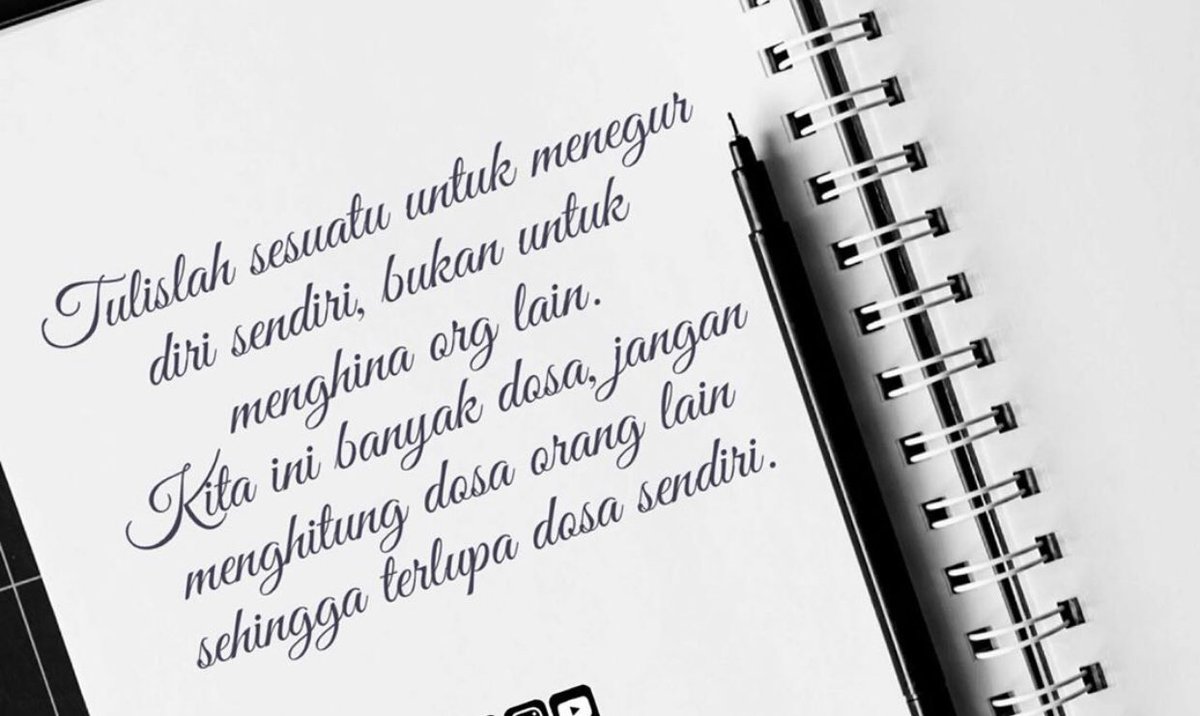 Tulislah sesuatu untuk menegur
diri sendiri, bukan untuk
menghina org lain.
Kita ini banyak dosa, jangan
menghitung dosa orang lain
sehingga terlupa dosa sendiri.